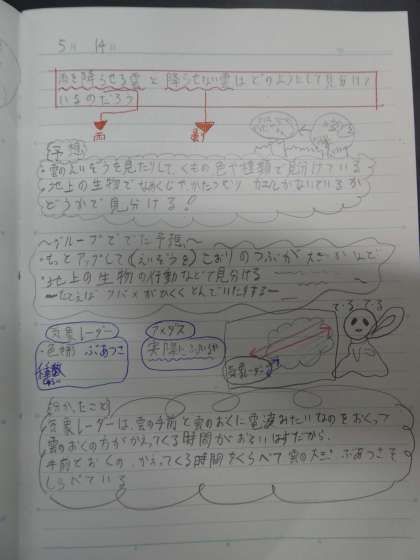 5月 14日
雨を降らせる雲と降らせない雲はどのようにして見分けて
いるのだろう
雨
予想
・雲のえいぞうを見たりして、くもの色や種類で見分けている
・地上の生物でなめくじや、かたつむり かえるがないているか
どうかで見分ける!
〜グループででた予想〜
・もっとアップして(えいぞうを)こおりのつぶが大きいかんで
・地上の生物の行動などで見分ける
たとえばツバメがひくくとんでいたりする
気象レーダー
・色別 ぶあつさ
種類
アメダス
実際に
てるてる
分かたこと
気象レーダーは、雲の手前と雲のおくに電波みたいなのをおくって
雲のおくの方がかえってくる時間がおそいはずだから、
手前とおくの、かえってくる時間をくらべて雲の大きさ、ぶあつさを
しらべている